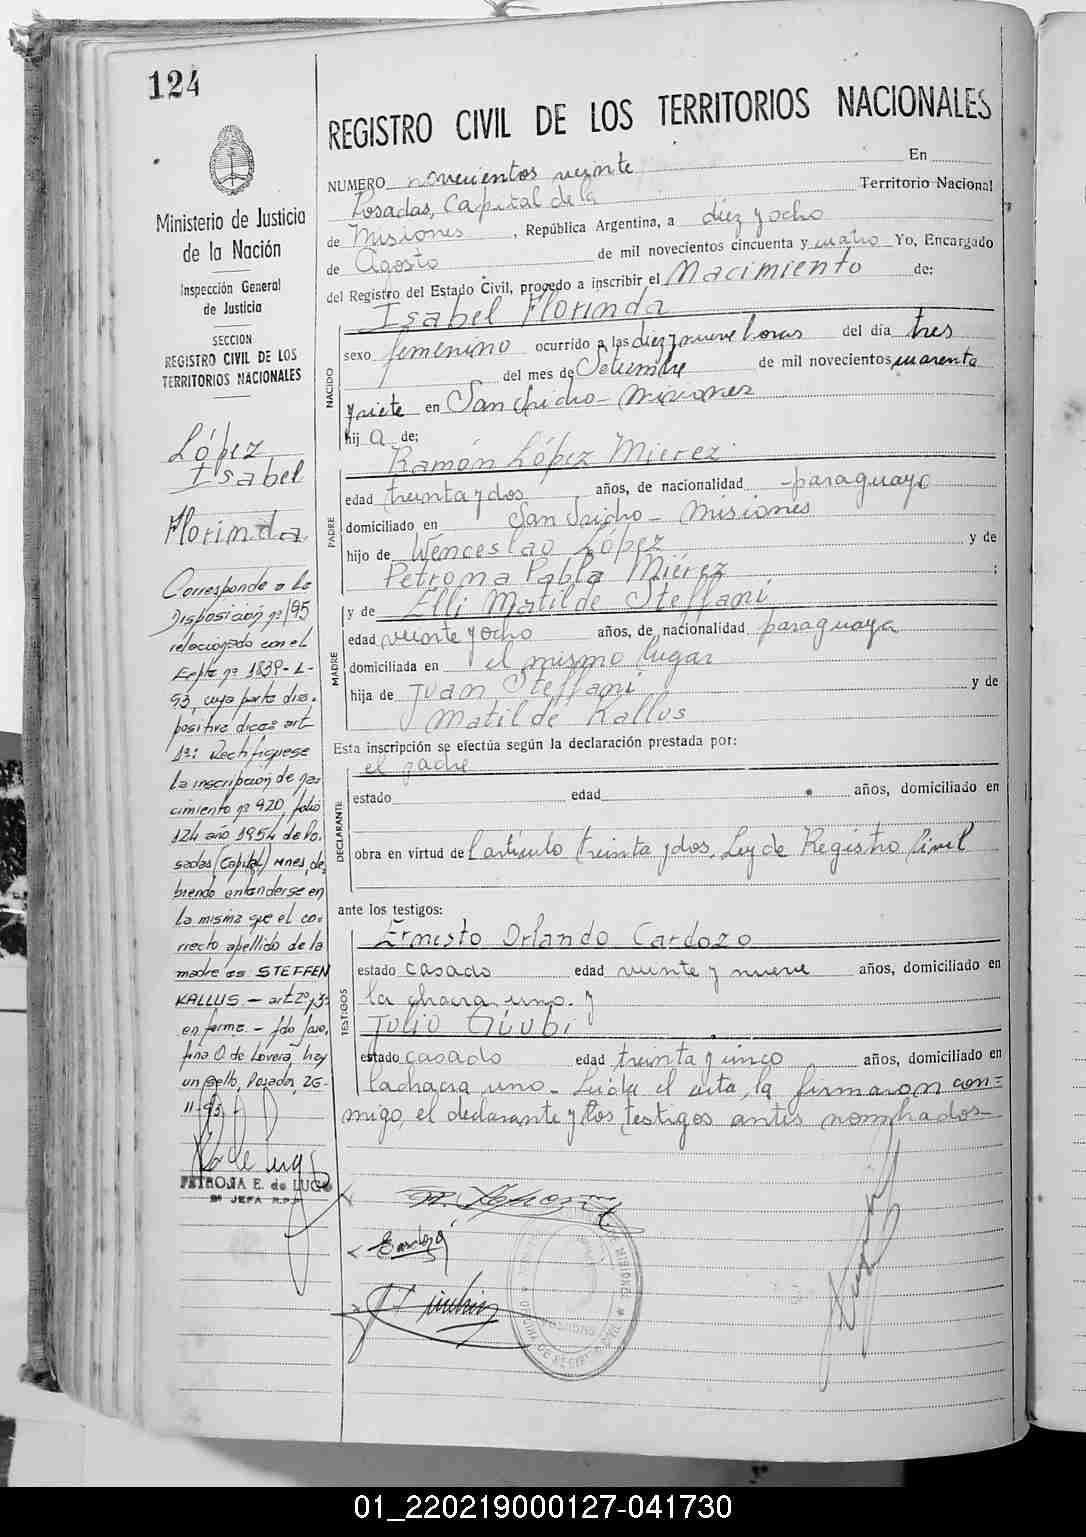 124
Ministerio de Justicia
de la Nación
Inspección General
de Justicia
SECCION
REGISTRO CIVIL DE LOS
TERRITORIOS NACIONALES
López
Isabel
Florinda
Corresponde a la
Disposición nº 195
relacionado con el
Expte nº 1839-L-
93, cuya parte dis-
positiva dice: art-
1º: Rectifíquese
la inscripción de na-
cimiento nº 920 folio
124 año 1954 de Po-
sadas (Capital) Mnes, de-
biendo entenderse en
la misma que el co-
rrecto apellido de la
madre es STEFFEN
KALLUS. - art 2º y 3º
en forma - fdo Jose-
fina O. de Lovera, hay
un sello, Posadas, 26-
11-93
PETRONA E. de LUGO
JEFA R.P.P.
REGISTRO CIVIL DE LOS TERRITORIOS NACIONALES
NUMERO novecientos veinte En
Posadas, Capital de la Territorio Nacional
de Misiones, República Argentina, a diez y ocho
de Agosto de mil novecientos cincuenta y cuatro Yo, Encargado
del Registro del Estado Civil, procedo a inscribir el Nacimiento de:
Isabel Florinda
NACIDO
sexo femenino ocurrido a las diez y nueve horas del día tres
del mes de Setiembre de mil novecientos cuarenta
y siete en San Isidro - Misiones
hij a de:
Ramón López Mierez
PADRE
edad treinta y dos años, de nacionalidad paraguayo
domiciliado en San Isidro - Misiones
hijo de Wenceslao López y de
Petrona Pabla Miérez ;
y de Elli Matilde Steffani
MADRE
edad veinte y ocho años, de nacionalidad paraguaya
domiciliada en el mismo lugar
hija de Juan Steffani y de
Matilde Kallus
Esta inscripción se efectúa según la declaración prestada por:
el padre
DECLARANTE
estado edad años, domiciliado en
obra en virtud del artículo treinta y dos, Ley de Registro Civil
ante los testigos:
Ernesto Orlando Cardozo
TESTIGOS
estado casado edad veinte y nueve años, domiciliado en
la chacra uno. y
Julio
estado casado edad treinta y cinco años, domiciliado en
la chacra uno - Leída el acta, la firmaron con-
migo, el declarante y los testigos antes nombrados-
01_220219000127-041730